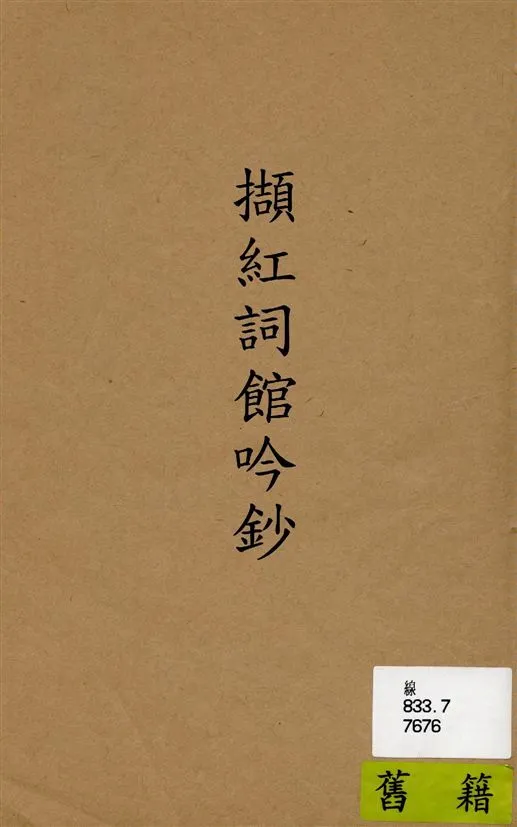 擷紅詞館吟鈔
線
833.7
7676
舊籍